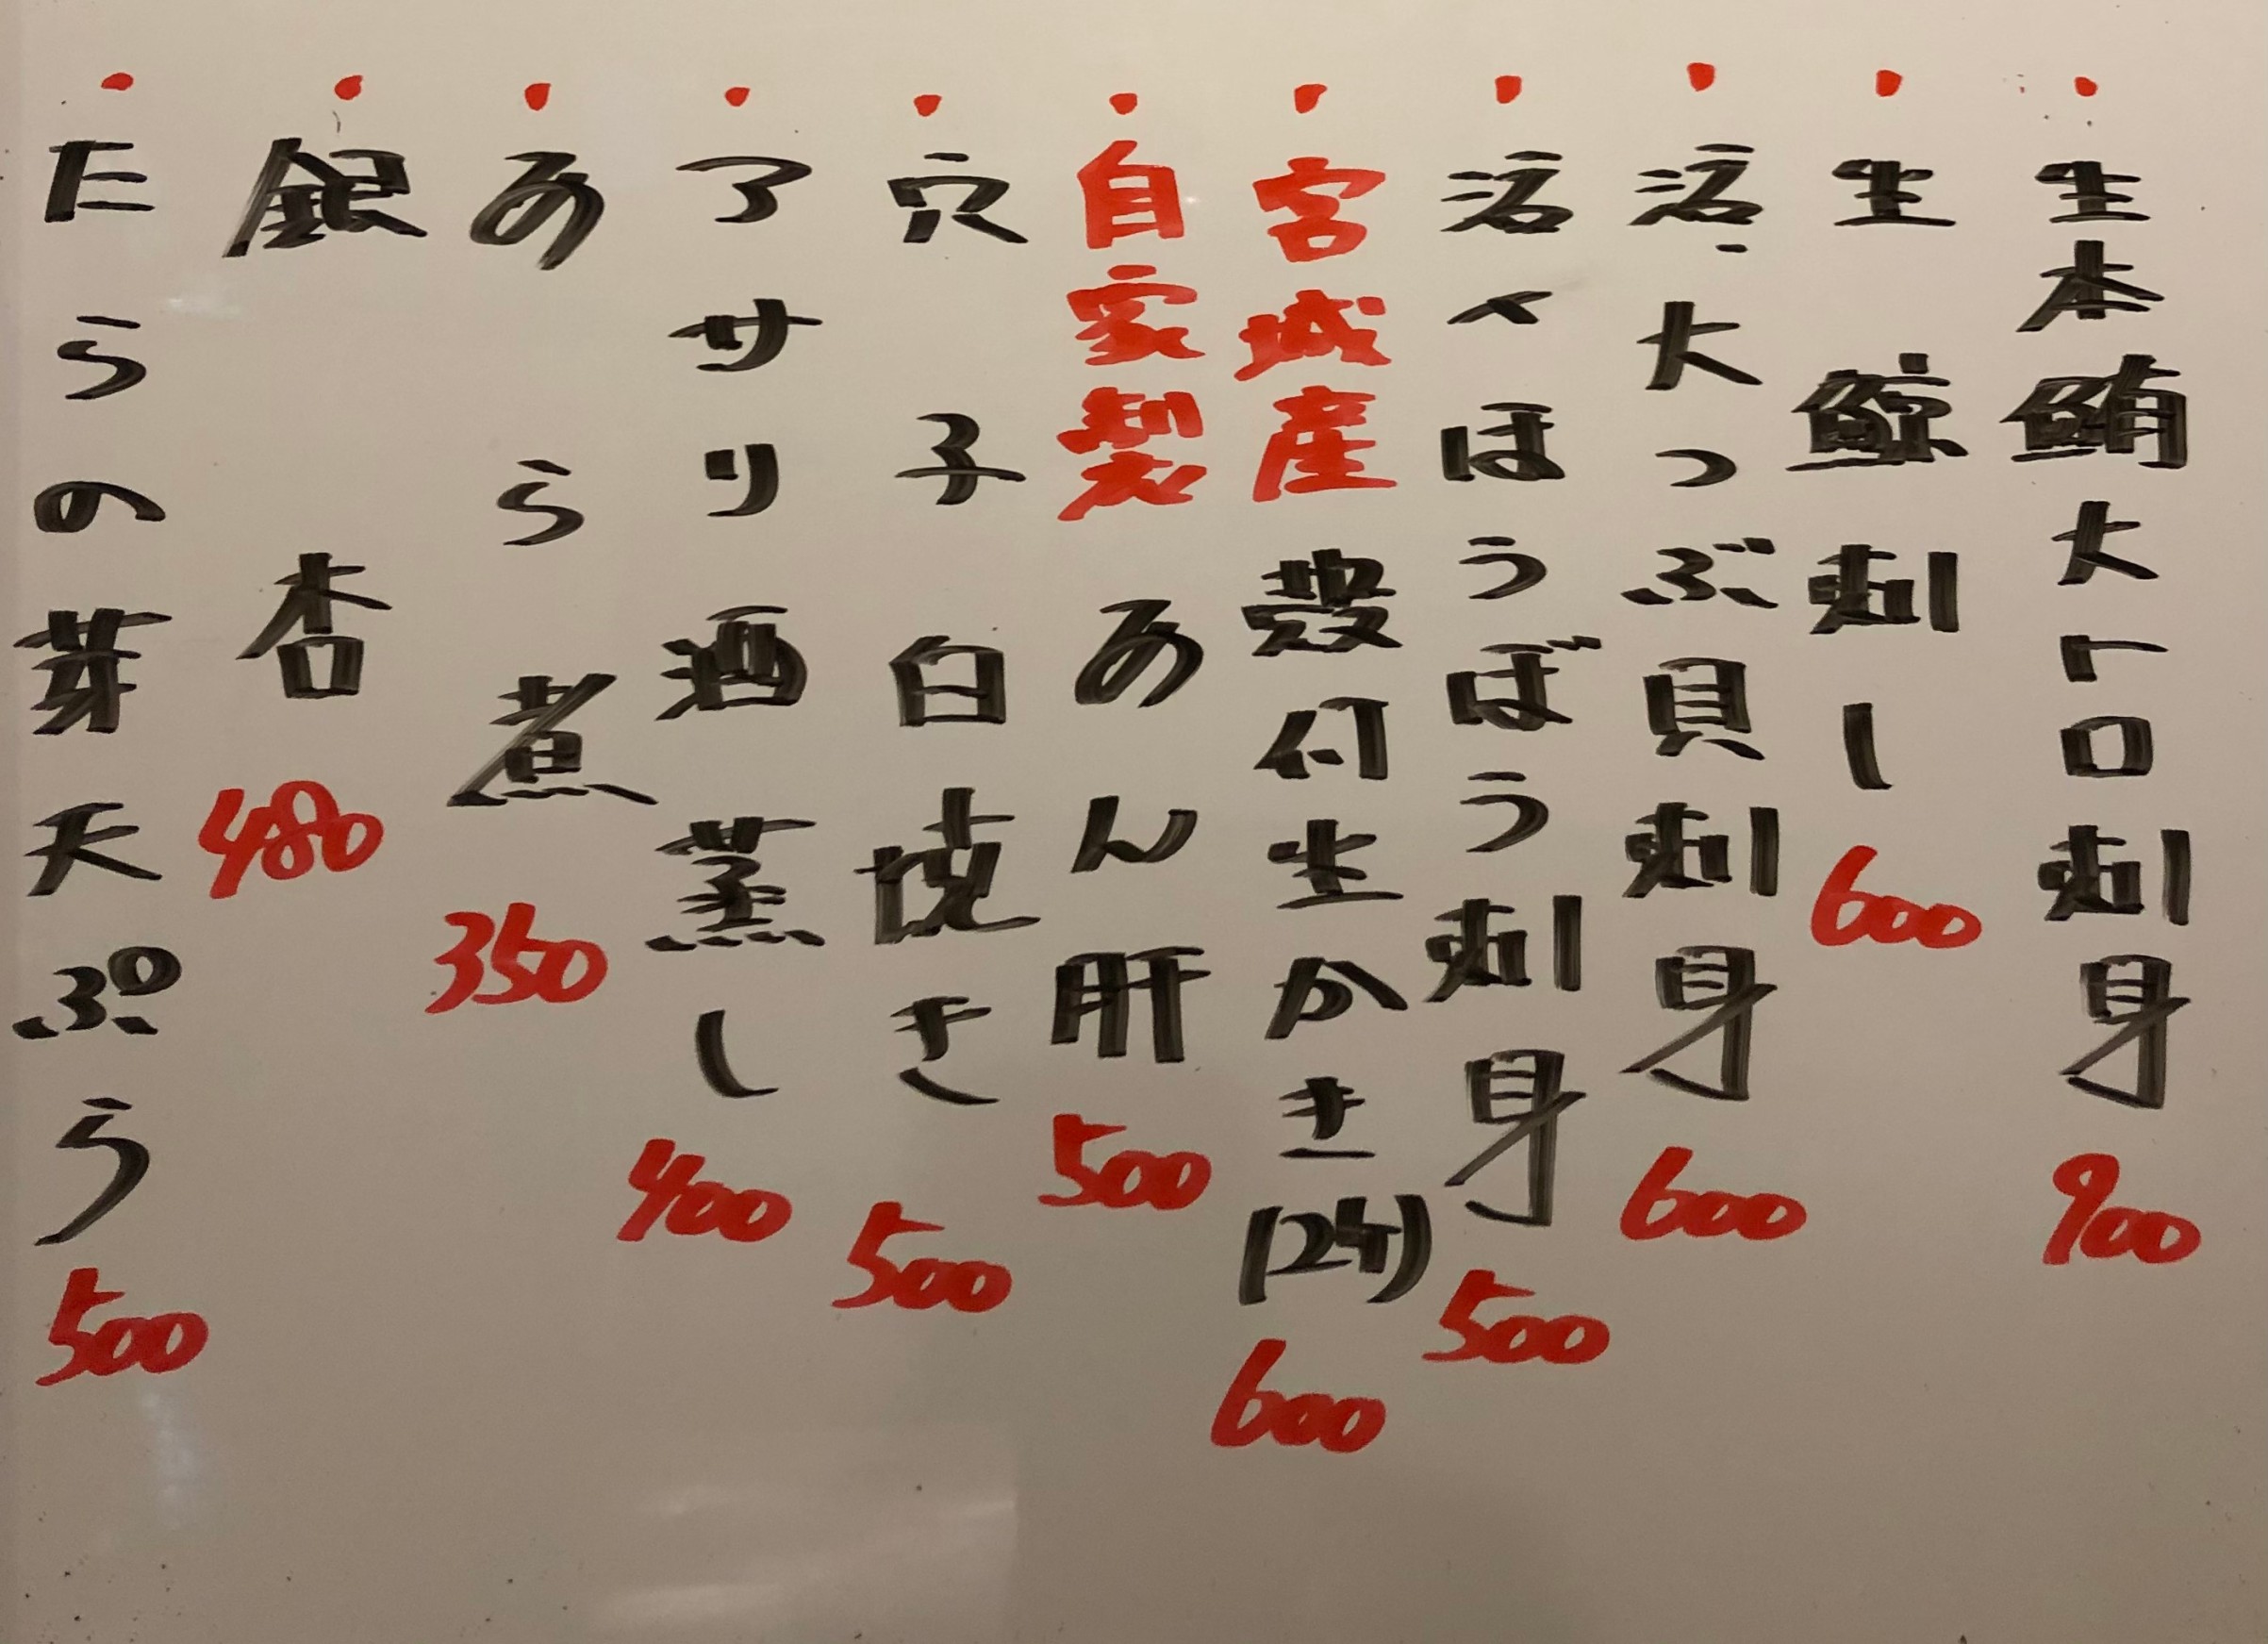 ・生本鮪大トロ刺身 900
・生鯨刺し 600
・活大つぶ貝刺身 600
・活〆ほうぼう刺身 500
・宮城産 殻付生かき(2ケ) 600
・自家製 あん肝 500
・穴子白焼き 500
・アサリ酒蒸し 400
・あら煮 350
・銀杏 480
・たらの芽天ぷら 500